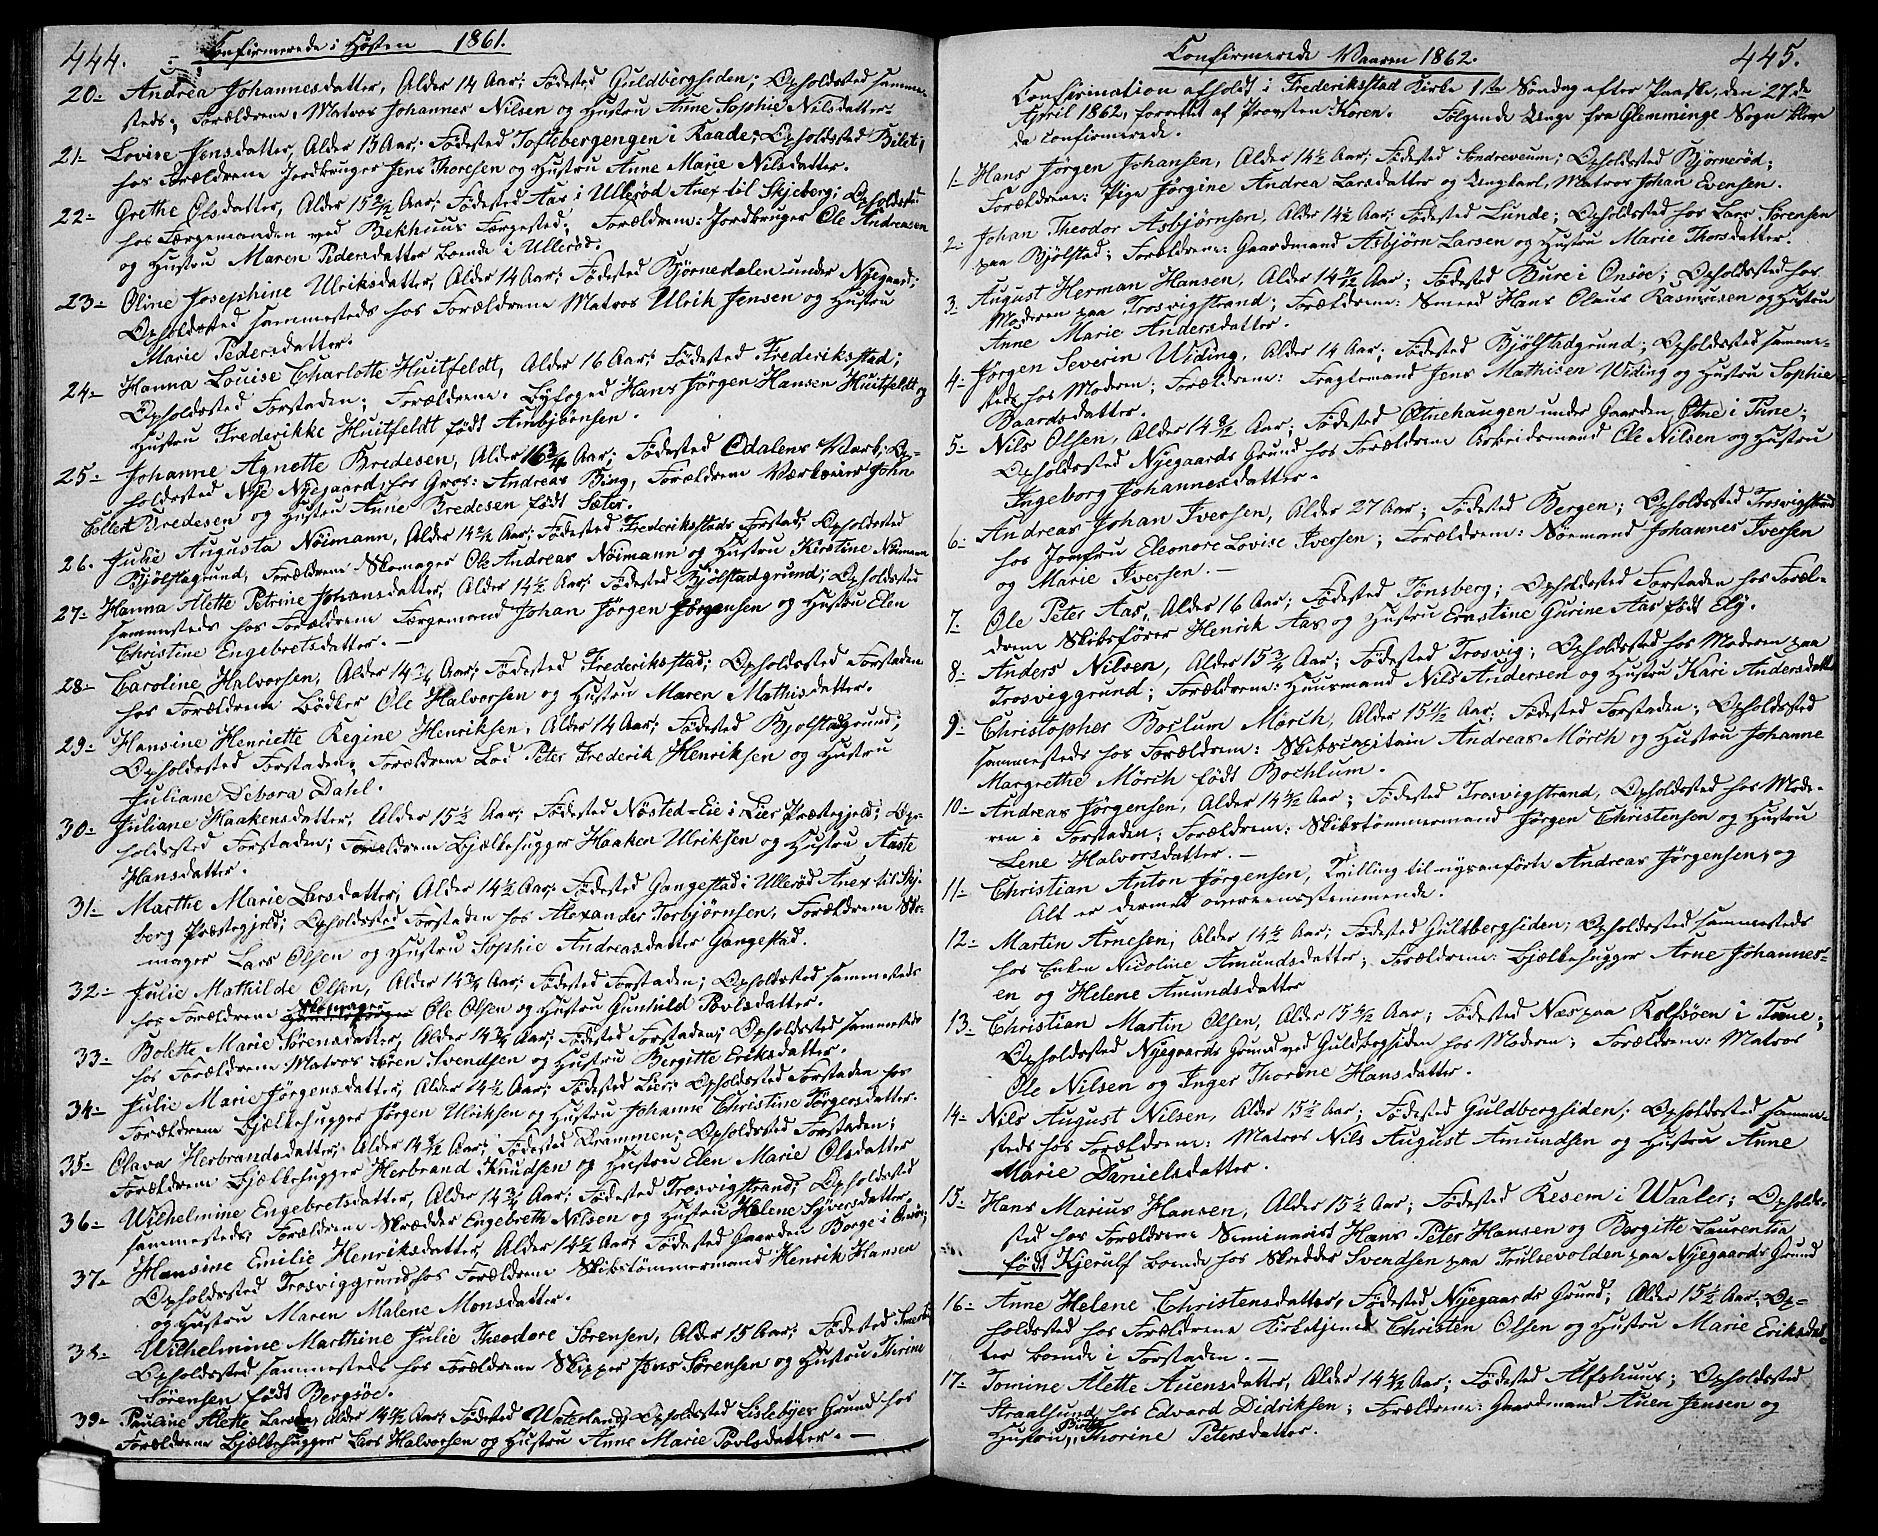 444.
Confirmerede i Høsten 1861.
20- Andrea Johannesdatter, Alder 14 Aar; Fødested Guldbergsiden; Opholdssted samme-
steds; Forældrene: Matros Johannes Nilsen og Hustru Anne Sophie Nilsdatter.
21- Lovise Jensdatter, Alder 15 Aar. Fødested Toftebergengen i Raade; Opholdssted
hos Forældrene Jordbruger Jens Thoresen og Hustru Anne Marie Nilsdatter.
22- Grethe Olsdatter, Alder 15 2/12 Aar; Fødested Aas i Ullerød Anex til Skjeberg; Opholdssted
hos Færgemanden ved Bekhuus Færgested; Forældrene: Jordbruger Ole Andreasen
og Hustru Maren Pedersdatter boende i Ullerød.
23- Oline Josephine Ulriksdatter, Alder 14 Aar; Fødested Bjørnedalen under Nyegaard;
Opholdssted sammesteds hos Forældrene Matros Ulrik Jensen og Hustru
Marie Pedersdatter.
24- Hanna Louise Charlotte Huitfeldt, Alder 16 Aar; Fødested Frederiksstad;
Opholdssted Forstaden; Forældrene: Byfoged Hans Jørgen Hansen Huitfeldt og
Hustru Frederikke Huitfeldt født Ambjörnsen.
25- Johanne Agnette Bredesen, Alder 16 3/4 Aar; Fødested Odalens Værk; Op-
holdssted Nye Nyegaard, hos Gros: Andreas Bing, Forældrene Værkseier John
Ellert Bredesen og Hustru Anne Bredesen født Sæter.
26. Julie Augusta Nöimann, Alder 14 Aar; Fødested Frederiksstads Forstad; Opholdssted
Bjölstadgrund, Forældrene Skomager Ole Andreas Nöimann og Hustru Kirstine Nöimann
27- Hanna Alette Petrine Johansdatter, Alder 14 1/2 Aar; Fødested Bjölstadgrund; Opholdssted
sammesteds hos Forældrene Færgemand Johan Jörgen Jørgensen og Hustru Elen
Christine Engebretsdatter. —
28- Caroline Halvorsen, Alder 14 3/4 Aar; Fødested Frederiksstad; Opholdssted Forstaden
hos Forældrene Bödker Ole Halvorsen og Hustru Maren Mathisdatter.
29- Hansine Henriette Regine Henriksen, Alder 14 Aar; Fødested Bjølstadgrund;
Opholdssted Forstaden; Forældrene Lods Peter Frederik Henriksen og Hustru
Juliane Debora Dahl.
30- Juliane Haakensdatter, Alder 15 1/2 Aar; Fødested Nøsted-Eie i Lier Præstegjeld; Op-
holdssted Forstaden; Forældrene Bjælkehugger Haaken Ulriksen og Hustru Aaste
Hansdatter.
31- Marthe Marie Larsdatter, Alder 14 1/2 Aar; Fødested Gangestad i Ullerød Anex til Skje-
berg Præstegjeld; Opholdssted Forstaden hos Alexander Torbjørnsen, Forældrene Sko-
mager Lars Olsen og Hustru Sophie Andreasdatter Gangestad.
32- Julie Mathilde Olsen, Alder 14 3/4 Aar; Fødested Forstaden; Opholdssted sammesteds
hos Forældrene Skomager Ole Olsen og Hustru Gunhild Povlsdatter.
33- Bolette Marie Sørensdatter, Alder 14 3/4 Aar; Fødested Forstaden; Opholdssted sammesteds
hos Forældrene Matros Søren Svendsen og Hustru Bergitte Eriksdatter.
34- Julie Marie Jörgensdatter, Alder 14 1/2 Aar; Fødested Lier; Opholdssted Forstaden hos
Forældrene Bjælkehugger Jörgen Ulriksen og Hustru Johanne Christine Jörgensdatter.
35- Olava Herbrandsdatter, Alder 14 Aar; Fødested Drammen; Opholdssted Forstaden;
Forældrene Bjælkehugger Herbrand Knudsen og Hustru Elen Marie Olsdatter
36- Wilhelmine Engebretsdatter, Alder 14 3/4 Aar; Fødested Trosvigstrand; Opholdssted
sammesteds; Forældrene Skrædder Engebreth Nilsen og Hustru Helene Syversdatter.
37- Hansine Emilie Henriksdatter, Alder 14 1/2 Aar; Fødested Gaarden Borge i Onsø;
Opholdssted Trosviggrund hos Forældrene Skibstömmermand Henrik Hansen
og Hustru Maren Malene Monsdatter.
38- Wilhelmine Marthine Julie Theodore Sörensen, Alder 15 Aar; Fødested
Opholdssted sammesteds hos Forældrene Skipper Jens Sørensen og Hustru Thrine
Sørensen født Bergsøe.
39- Pauline Alette Larsen, Alder 14 Aar; Fødested Waterland; Opholdssted Lislebyes Grund hos
Forældrene Bjælkehugger Lars Halvorsen og Hustru Anne Marie Povlsdatter. —
445.
Confirmerede Vaaren 1862.
Confirmation afholdt i Frederiksstad Kirke 1ste Söndag efter Paaske, den 27de
April 1862, forrettet af Provsten Koren. Følgende Unge fra Glemminge Sogn bleve
da confirmerede.
1- Hans Jørgen Johansen, Alder 14 1/2 Aar; Fødested Sondreveum; Opholdssted Bjørnerød;
Forældrene: Pige Jörgine Andrea Larsdatter og Ungkarl, Matros Johan Evensen.
2- Johan Theodor Asbjørnsen, Alder 14 1/2 Aar; Fødested Lunde; Opholdssted hos Lars Sørensen
paa Bjölstad; Forældrene: Gaardmand Asbjørn Larsen og Hustru Marie Thorsdatter.
3- August Herman Hansen, Alder 14 Aar; Fødested Bure i Onsøe; Opholdssted hos
Moderen paa Trosvigstrand; Forældrene: Smeed Hans Olaus Rasmusen og Hustru
Anne Marie Andersdatter.
4- Jørgen Severin Widing, Alder 14 Aar; Fødested Bjölstadgrund; Opholdssted samme-
steds hos Moderen; Forældrene: Fragtemand Jens Mathisen Widing og Hustru Sophie
Baardsdatter.
5- Nils Olsen, Alder 14 Aar; Fødested Ötnehaugen under Gaarden Ötne i Tune;
Opholdssted Nyegaards Grund hos Forældrene Arbeidsmand Ole Nilsen og Hustru
Ingeborg Johannesdatter.
6- Andreas Johan Iversen, Alder 27 Aar; Fødested Bergen; Opholdssted Trosvigstrand
hos Jomfru Eleonore Lovise Iversen; Forældrene: Sömand Johannes Iversen
og Marie Iversen. —
7- Ole Peter Aas, Alder 16 Aar; Fødested Tønsberg; Opholdssted Forstaden hos Foræl-
drene Skibsfører Henrik Aas og Hustru Ernstine Gurine Aas født Ely.
8- Anders Nilsen, Alder 15 3/4 Aar; Fødested Trosvig; Opholdssted hos Moderen paa
Trosviggrund; Forældrene: Huusmand Nils Andersen og Hustru Kari Andersdatter
9- Christopher Boclum Mörch, Alder 15 1/2 Aar; Fødested Forstaden; Opholdssted
sammesteds hos Forældrene: Skibscapitain Andreas Mörch og Hustru Johanne
Margrethe Mörch født Bochlum.
10- Andreas Jørgensen, Alder 14 Aar; Fødested Trosvigstrand, Opholdssted hos Mode-
ren i Forstaden; Forældrene: Skibstömmermand Jörgen Christensen og Hustru
Lene Halvorsdatter. —
11- Christian Anton Jørgensen, Tvilling til nysanførte Andreas Jørgensen, og
Alt er dermed overeensstemmende.
12- Martin Arnesen, Alder 14 1/2 Aar; Fødested Guldbergsiden; Opholdssted sammesteds
hos Enken Nicoline Amundsdatter; Forældrene: Bjælkehugger Arne Johannes-
en og Helene Amundsdatter
13- Christian Martin Olsen, Alder 15 Aar; Fødested Næs paa Rolfsöen i Tune;
Opholdssted Nyegaards Grund ved Guldbergsiden hos Moderen; Forældrene: Matros
Ole Nilsen og Inger Thorine Hansdatter.
14- Nils August Nilsen, Alder 15 1/2 Aar; Fødested Guldbergsiden; Opholdssted samme-
steds hos Forældrene: Matros Nils August Amundsen og Hustru Anne
Marie Danielsdatter.
15- Hans Marius Hansen, Alder 15 1/2 Aar; Fødested Kesem i Waaler; Opholds-
sted hos Forældrene Seminarist Hans Peter Hansen og Bergitte Laurentia
født Kjerulf boende hos Skrædder Svendsen paa Trulsevolden paa Nyegaards Grund
16- Anne Helene Christensdatter, Fødested Nyegaards Grund; Alder 15 1/2 Aar; Op-
holdssted hos Forældrene Kirketjener Christen Olsen og Hustru Marie Eriksdat-
ter boende i Forstaden. —
17- Tomine Alette Auensdatter, Alder 14 1/2 Aar; Fødested Alfshuus; Opholdssted
Straalsund hos Edvard Didriksen; Forældrene: Gaardmand Auen Jensen og
Hustru Thorine Petersdatter.